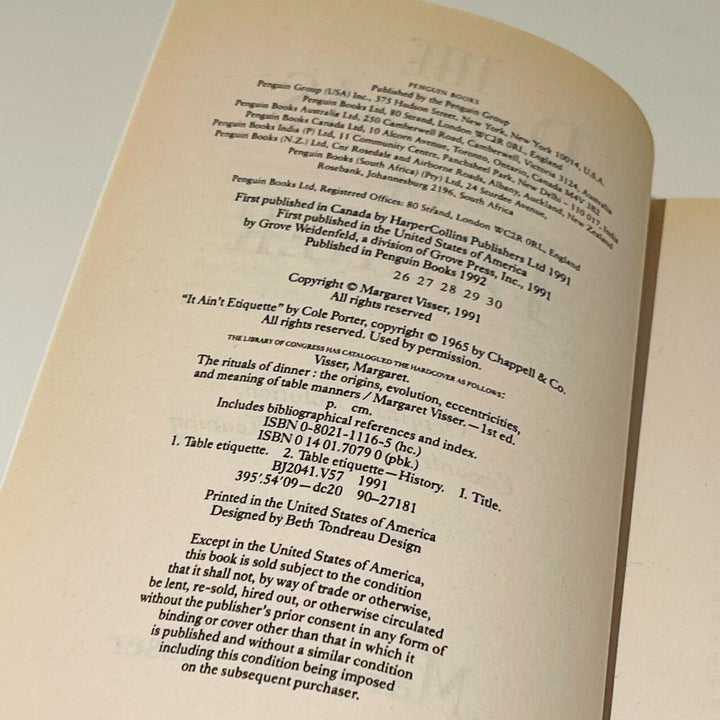 PENGUIN BOOKS
Published by the Penguin Group
Penguin Group (USA) Inc., 375 Hudson Street, New York, New York 10014, U.S.A.
Penguin Books Ltd, 80 Strand, London WC2R 0RL, England
Penguin Books Australia Ltd, 250 Camberwell Road, Camberwell, Victoria 3124, Australia
Penguin Books Canada Ltd, 10 Alcorn Avenue, Toronto, Ontario, Canada M4V 3B2
Penguin Books India (P) Ltd, 11 Community Centre, Panchsheel Park, New Delhi – 110 017, India
Penguin Books (N.Z.) Ltd, Cnr Rosedale and Airborne Roads, Albany, Auckland, New Zealand
Penguin Books (South Africa) (Pty) Ltd, 24 Sturdee Avenue,
Rosebank, Johannesburg 2196, South Africa
Penguin Books Ltd, Registered Offices: 80 Strand, London WC2R 0RL, England
First published in Canada by HarperCollins Publishers Ltd 1991
First published in the United States of America
by Grove Weidenfeld, a division of Grove Press, Inc., 1991
Published in Penguin Books 1992
26 27 28 29 30
Copyright © Margaret Visser, 1991
All rights reserved
"It Ain't Etiquette" by Cole Porter, copyright © 1965 by Chappell & Co.
All rights reserved. Used by permission.
THE LIBRARY OF CONGRESS HAS CATALOGUED THE HARDCOVER AS FOLLOWS:
Visser, Margaret.
The rituals of dinner : the origins, evolution, eccentricities,
and meaning of table manners / Margaret Visser.—1st ed.
p. cm.
Includes bibliographical references and index.
ISBN 0-8021-1116-5 (hc.)
ISBN 0 14 01.7079 0 (pbk.)
1. Table etiquette. 2. Table etiquette—History. I. Title.
BJ2041.V57 1991
395'.54'09—dc20 90–27181
Printed in the United States of America
Designed by Beth Tondreau Design
Except in the United States of America,
this book is sold subject to the condition
that it shall not, by way of trade or otherwise,
be lent, re-sold, hired out, or otherwise circulated
without the publisher's prior consent in any form of
binding or cover other than that in which it
is published and without a similar condition
including this condition being imposed
on the subsequent purchaser.